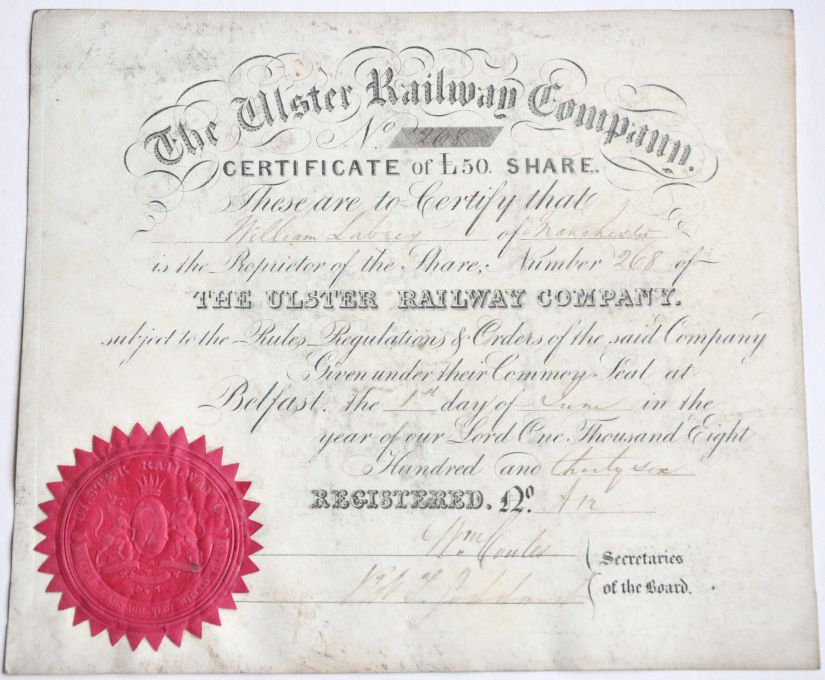 The Ulster Railway Company.
No. 268
CERTIFICATE of £50. SHARE.
These are to Certify that
William Labrey of Manchester
is the Proprietor of the Share, Number 268 of
THE ULSTER RAILWAY COMPANY.
subject to the Rules Regulations & Orders of the said Company
Given under their Common Seal at
Belfast. the 1st day of June in the
year of our Lord One Thousand Eight
Hundred and thirty six
REGISTERED. No.
Wm Coates
Secretaries
of the Board.
ULSTER RAILWAY Co